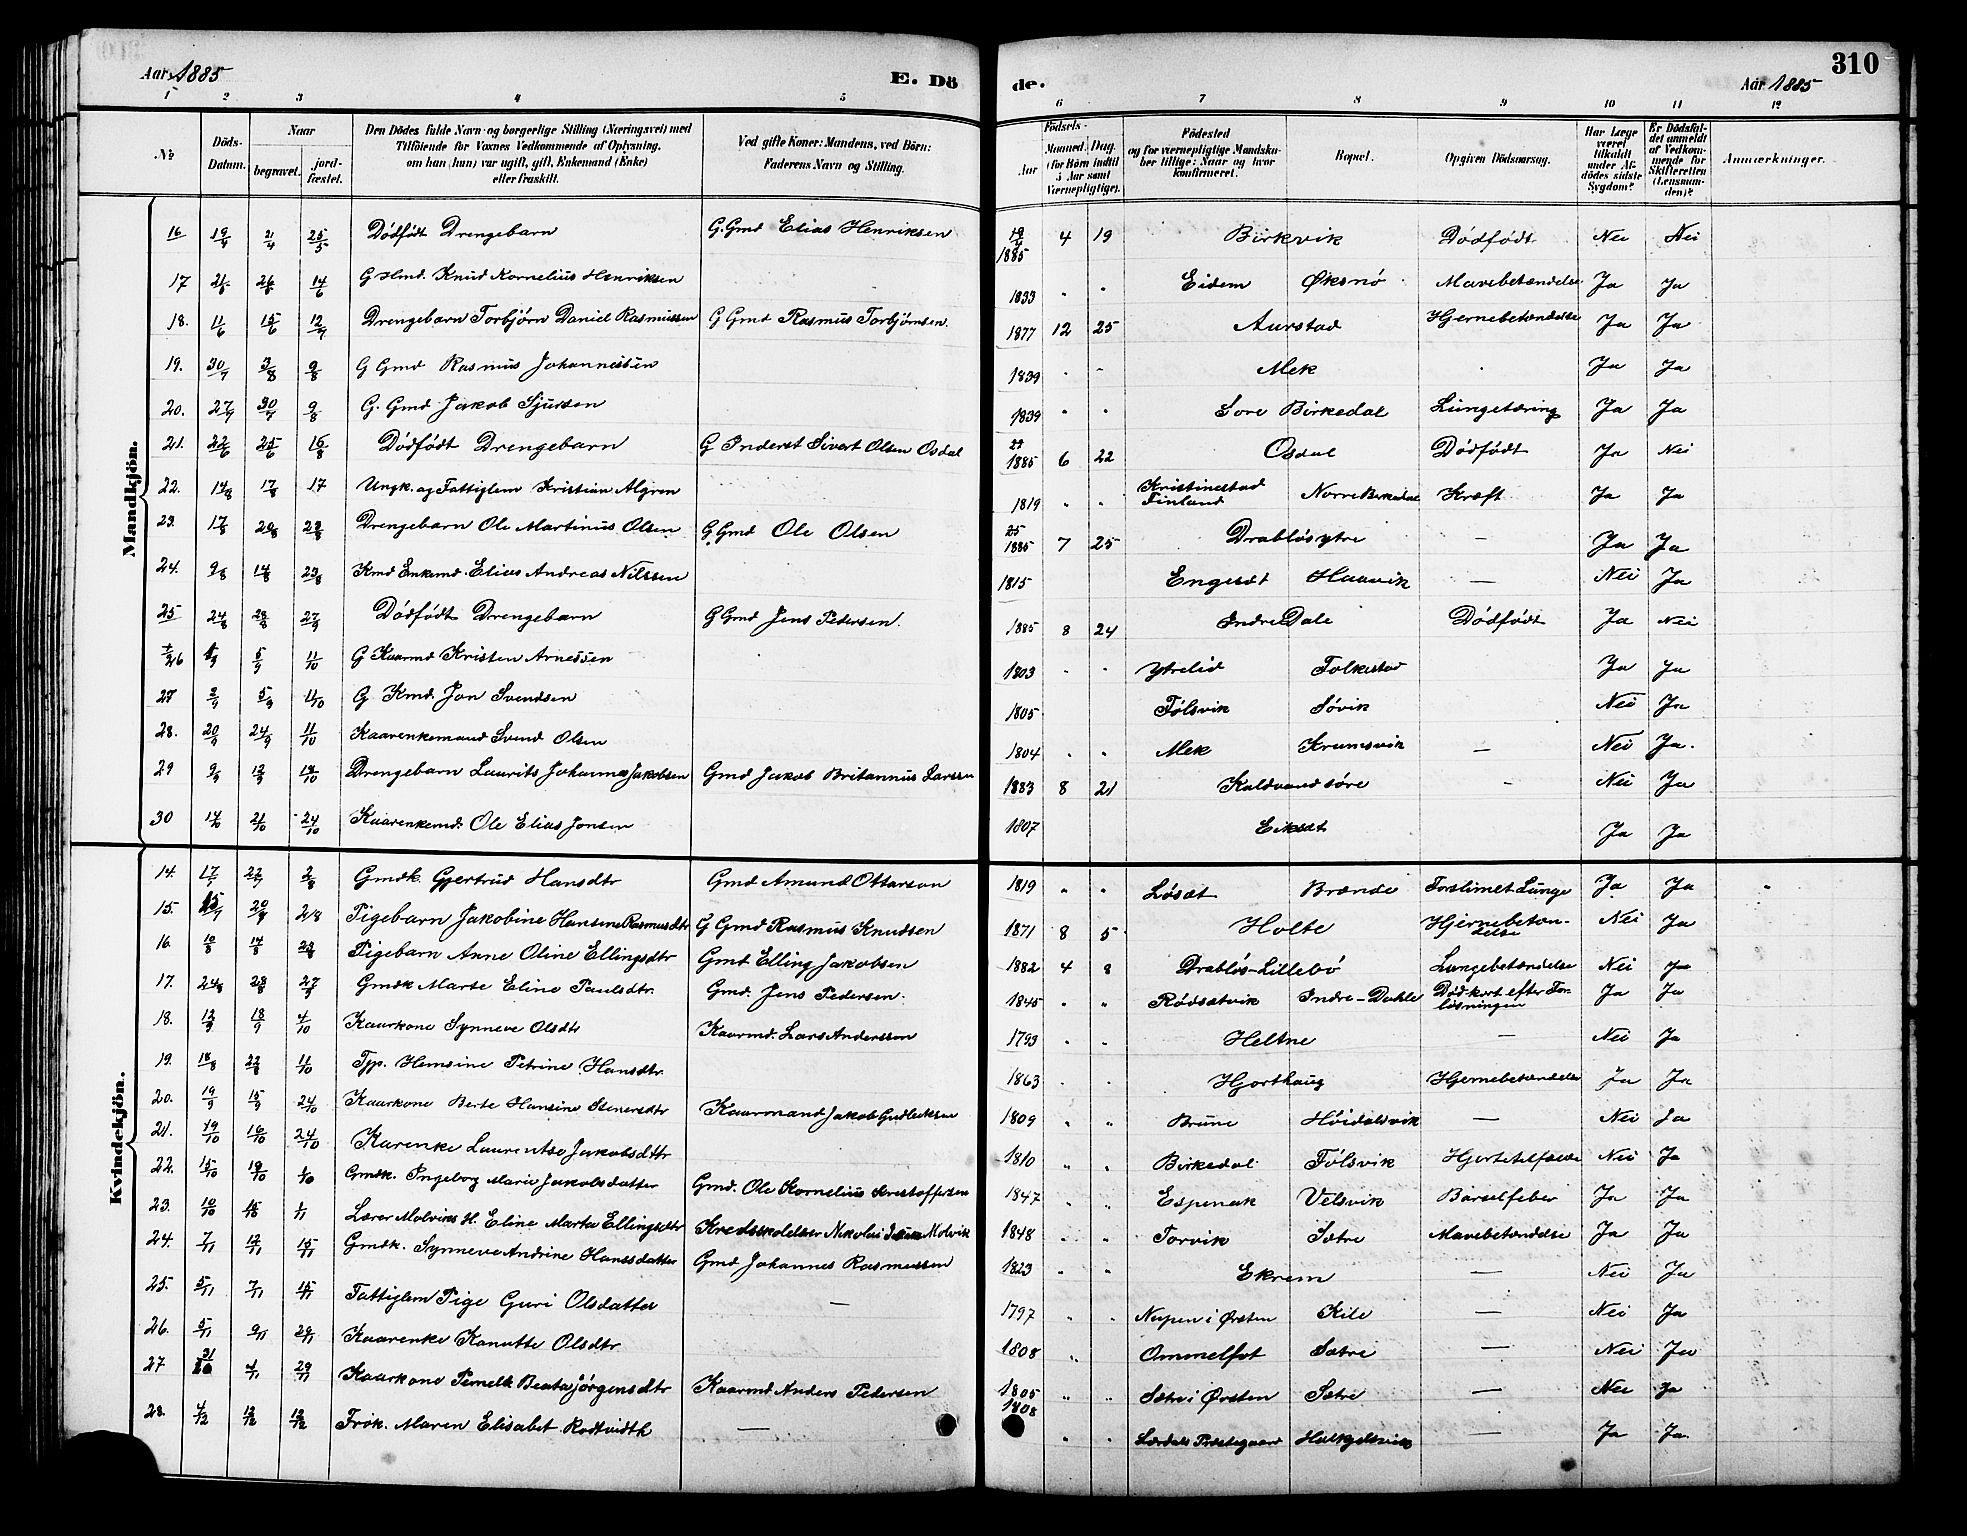 Aar 1885
E. Dö
de.
Aar 1885
310
1 2 3 4 5 6 7 8 9 10 11 12
No
Döds-
Datum.
Naar
begravet.
jord-
fæstet.
Den Dödes fulde Navn og borgerlige Stilling (Næringsvei) med
Tilföiende for Voxnes Vedkommende af Oplysning,
om han (hun) var ugift, gift, Enkemand (Enke)
eller fraskilt.
Ved gifte Koner: Mandens, ved Börn:
Faderens Navn og Stilling.
Födsels-
Aar
Maaned. Dag.
(for Börn indtil
5 Aar samt
Værnepligtige).
Födested
og for værnepligtige Mandska-
ber tillige: Naar og hvor
konfirmeret.
Bopæl.
Opgiven Dödsaarsag.
Har Læge
været
tilkaldt
under Af-
dödes sidste
Sygdom?
Er Dödsfal-
det anmeldt
af Vedkom-
mende for
Skifteretten
(Lensman-
den)?
Anmærkninger.
Mandkjön.
16 19/4 21/4 25/5 Dødfødt Drengebarn G. Gmd Elias Henriksen 19/4 1885 4 19 Birkvik Dødfødt Nei Nei
17 26/6 14/6 G Hmd. Knud Kornelius Henriksen 1833 " " Eidem Øksnø Mavebetændelse Ja Ja
18. 11/6 15/6 12/7 Drengebarn Torbjørn Daniel Rasmussen G Gmd Rasmus Torbjørnsen. 1877 12 25 Aurstad Hjernebetændelse Ja Ja
19. 30/7 3/8 9/8 G Gmd Rasmus Johannessen 1839 " " Mek Ja Ja
20. 27/7 30/7 9/8 G. Gmd Jakob Sjursen 1839 " " Søre Birkedal Lungetæring Ja Ja
21. 22/6 25/6 16/8 Dødfødt Drengebarn G Inderst Sivert Olsen Osdal 1885 6 22 Osdal Dødfødt Ja Nei
22. 14/8 17/8 17 Ungk. og Fattiglem Kristian Algren 1819 " " Kristinestad Finland Norre Birkedal Kræft Ja Ja
23. 17/8 20/8 23/8 Drengebarn Ole Martinus Olsen G. Gmd Ole Olsen 25 1885 7 25 Drabløsytre — Ja Ja
24. 9/8 14/8 23/8 Kmd Enkemd. Elias Andreas Nilssen 1815 Engeset Haavik — Nei Ja
25 24/8 28/8 27/9 Dødfødt Drengebarn G Gmd Jens Pedersen. 1885 8 24 Indre Dale Dødfødt Ja Nei
26 1/9 5/9 11/10 G Kaarmd Kristen Arnessen 1803 " " Ytrelid Folkestad Ja Ja
27 2/9 5/9 11/10 G Kmd. Jon Svendsen 1805 Følsvik Søvik Nei Ja
28. 20/9 24/9 11/10 Kaarenkemand Svend Olsen 1804 " " Mek Krumsvik — Nei Ja.
29 9/9 12/9 18/10 Drengebarn Laurits Johannes Jakobsen Gmd Jakob Britannus Larsen 1883 8 21 Kaldvand søre — Nei Ja
30 17/10 21/10 24/10 Kaarenkemd. Ole Elias Jonsen 1807 Eikset Ja Ja
Kvindekjön.
14. 17/7 22/7 2/8 Gmdk. Gjertrud Hansdtr Gmd Amund Ottarson 1819 " " Løset Brænde Forslimet Lunge Ja Ja "
15. 15/7 20/7 2/8 Pigebarn Jakobine Hansine Rasmusdtr G Gmd Rasmus Knudsen 1871 8 5 Holte Hjernebeten-
delse Nei Ja
16. 10/8 14/8 23/8 Pigebarn Anne Oline Ellingsdtr Gmd Elling Jakobsen 1882 4 8 Drabløs-Lillebø Lungebetændelse Nei Ja
17. 24/8 28/8 27/9 Gmdk Marte Eline Paulsdtr. Gmd. Jens Pedersen. 1845 " " Rødsætvik Indre-Dahle Død kort efter For-
løsningen Ja Ja
18. 12/9 18/9 4/10 Kaarkone Synneve Olsdtr Kaarmd. Lars Anderssen 1793 " " Heltne — Nei Ja
19. 18/8 22/8 11/10 Tjp. Hemsine Petrine Hansdtr 1863 Hjorthaug Hjernebetændelse Ja Ja
20. 19/9 15/9 24/10 Kaarkone Berte Hansine Stenersdtr Kaarmand Jakob Gudleiksen 1809 " " Brune Høidalsvik — Nei Ja
21. 19/10 16/10 24/10 Karenke Laurentse Jakobsdtr 1810 " " Birkedal Følsvik Hjertetilfælde Nei Ja
22. 15/10 19/10 1/10 Gmdk. Ingeborg Marie Jakobsdatter Gmd. Ole Kornelius Kristoffersen 1847 " " Espenak Velsvik Barselfeber Ja Ja
23. 10/10 15/10 1/11 Lærer Molviks H. Eline Marta Ellingsdtr Kredsskolelærer Nikolai Molvik 1848 " " Torvik Sætre Mavebetændelse Ja Ja
24. 7/11 12/11 15/11 Gmdk. Synneve Andrine Hanssdatter Gmd Johannes Rasmussen 1823 " " Ekrem — Nei Ja
25. 5/11 7/11 15/11 Fattiglem Pige Guri Olsdatter — 1797 " " Nupen i Ørsten Kile — Nei Ja
26. 5/11 9/11 29/11 Kaarenke Kanutte Olsdtr 1808 " Ommelfot Sætre — Nei Ja
27 31/10 4/11 29/11 Kaarkone Pernelle Beata Jørgensdtr Kaarmd Anders Pedersen 1805 " " Sætre i Ørsten Sætre — Nei Ja
28. 4/12 12/12 12/12 Frøk. Maren Elisabet Rodtvidth — 1808 " " Lærdals Præstegaard — Ja Ja